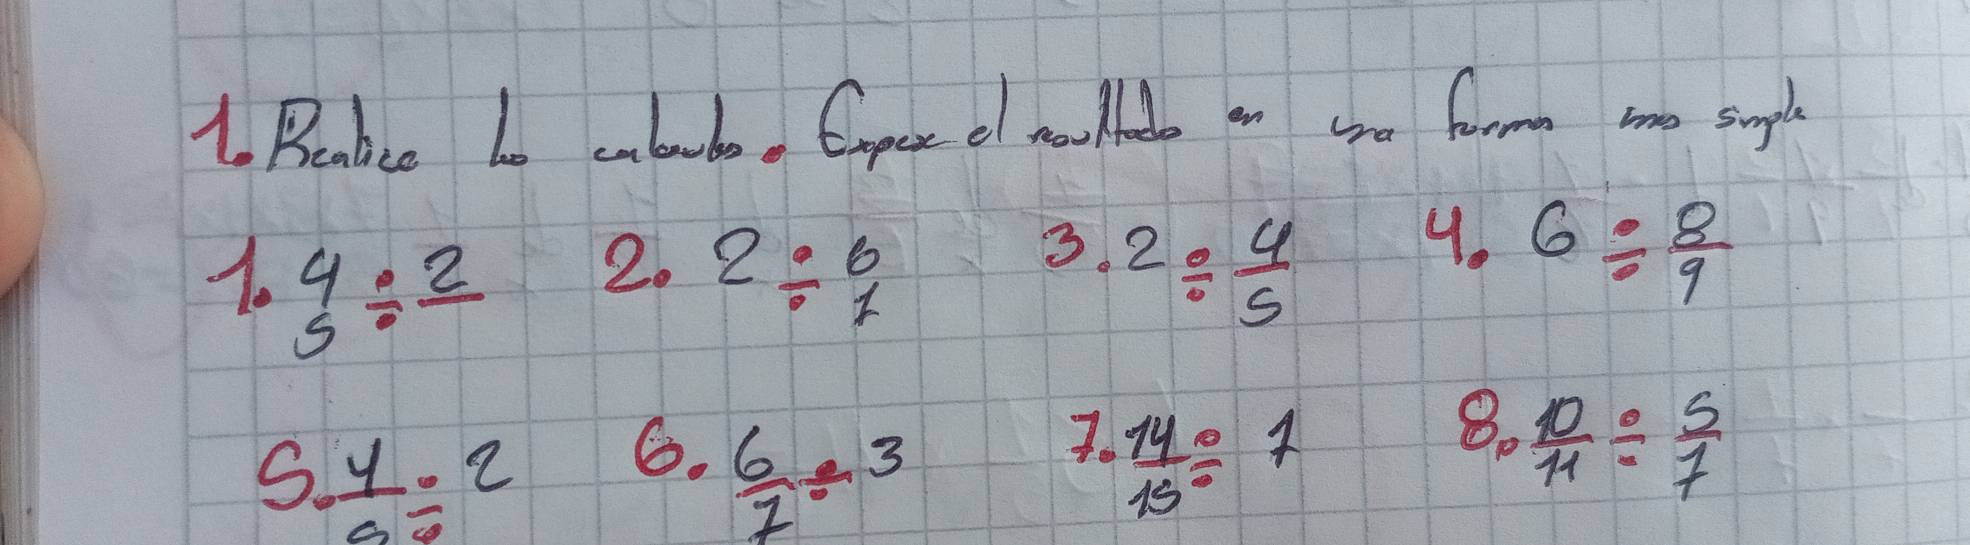 1. Realice los calculos. Exprese el resultado en una forma mas simple
1. 4/5 ÷ 2/ 2. 2 ÷ 6/7 3. 2 ÷ 4/5 4. 6 ÷ 8/9
5. 4/5 ÷ 2 6. 6/7 ÷ 3 7. 14/15 ÷ 7 8. 10/11 ÷ 5/7